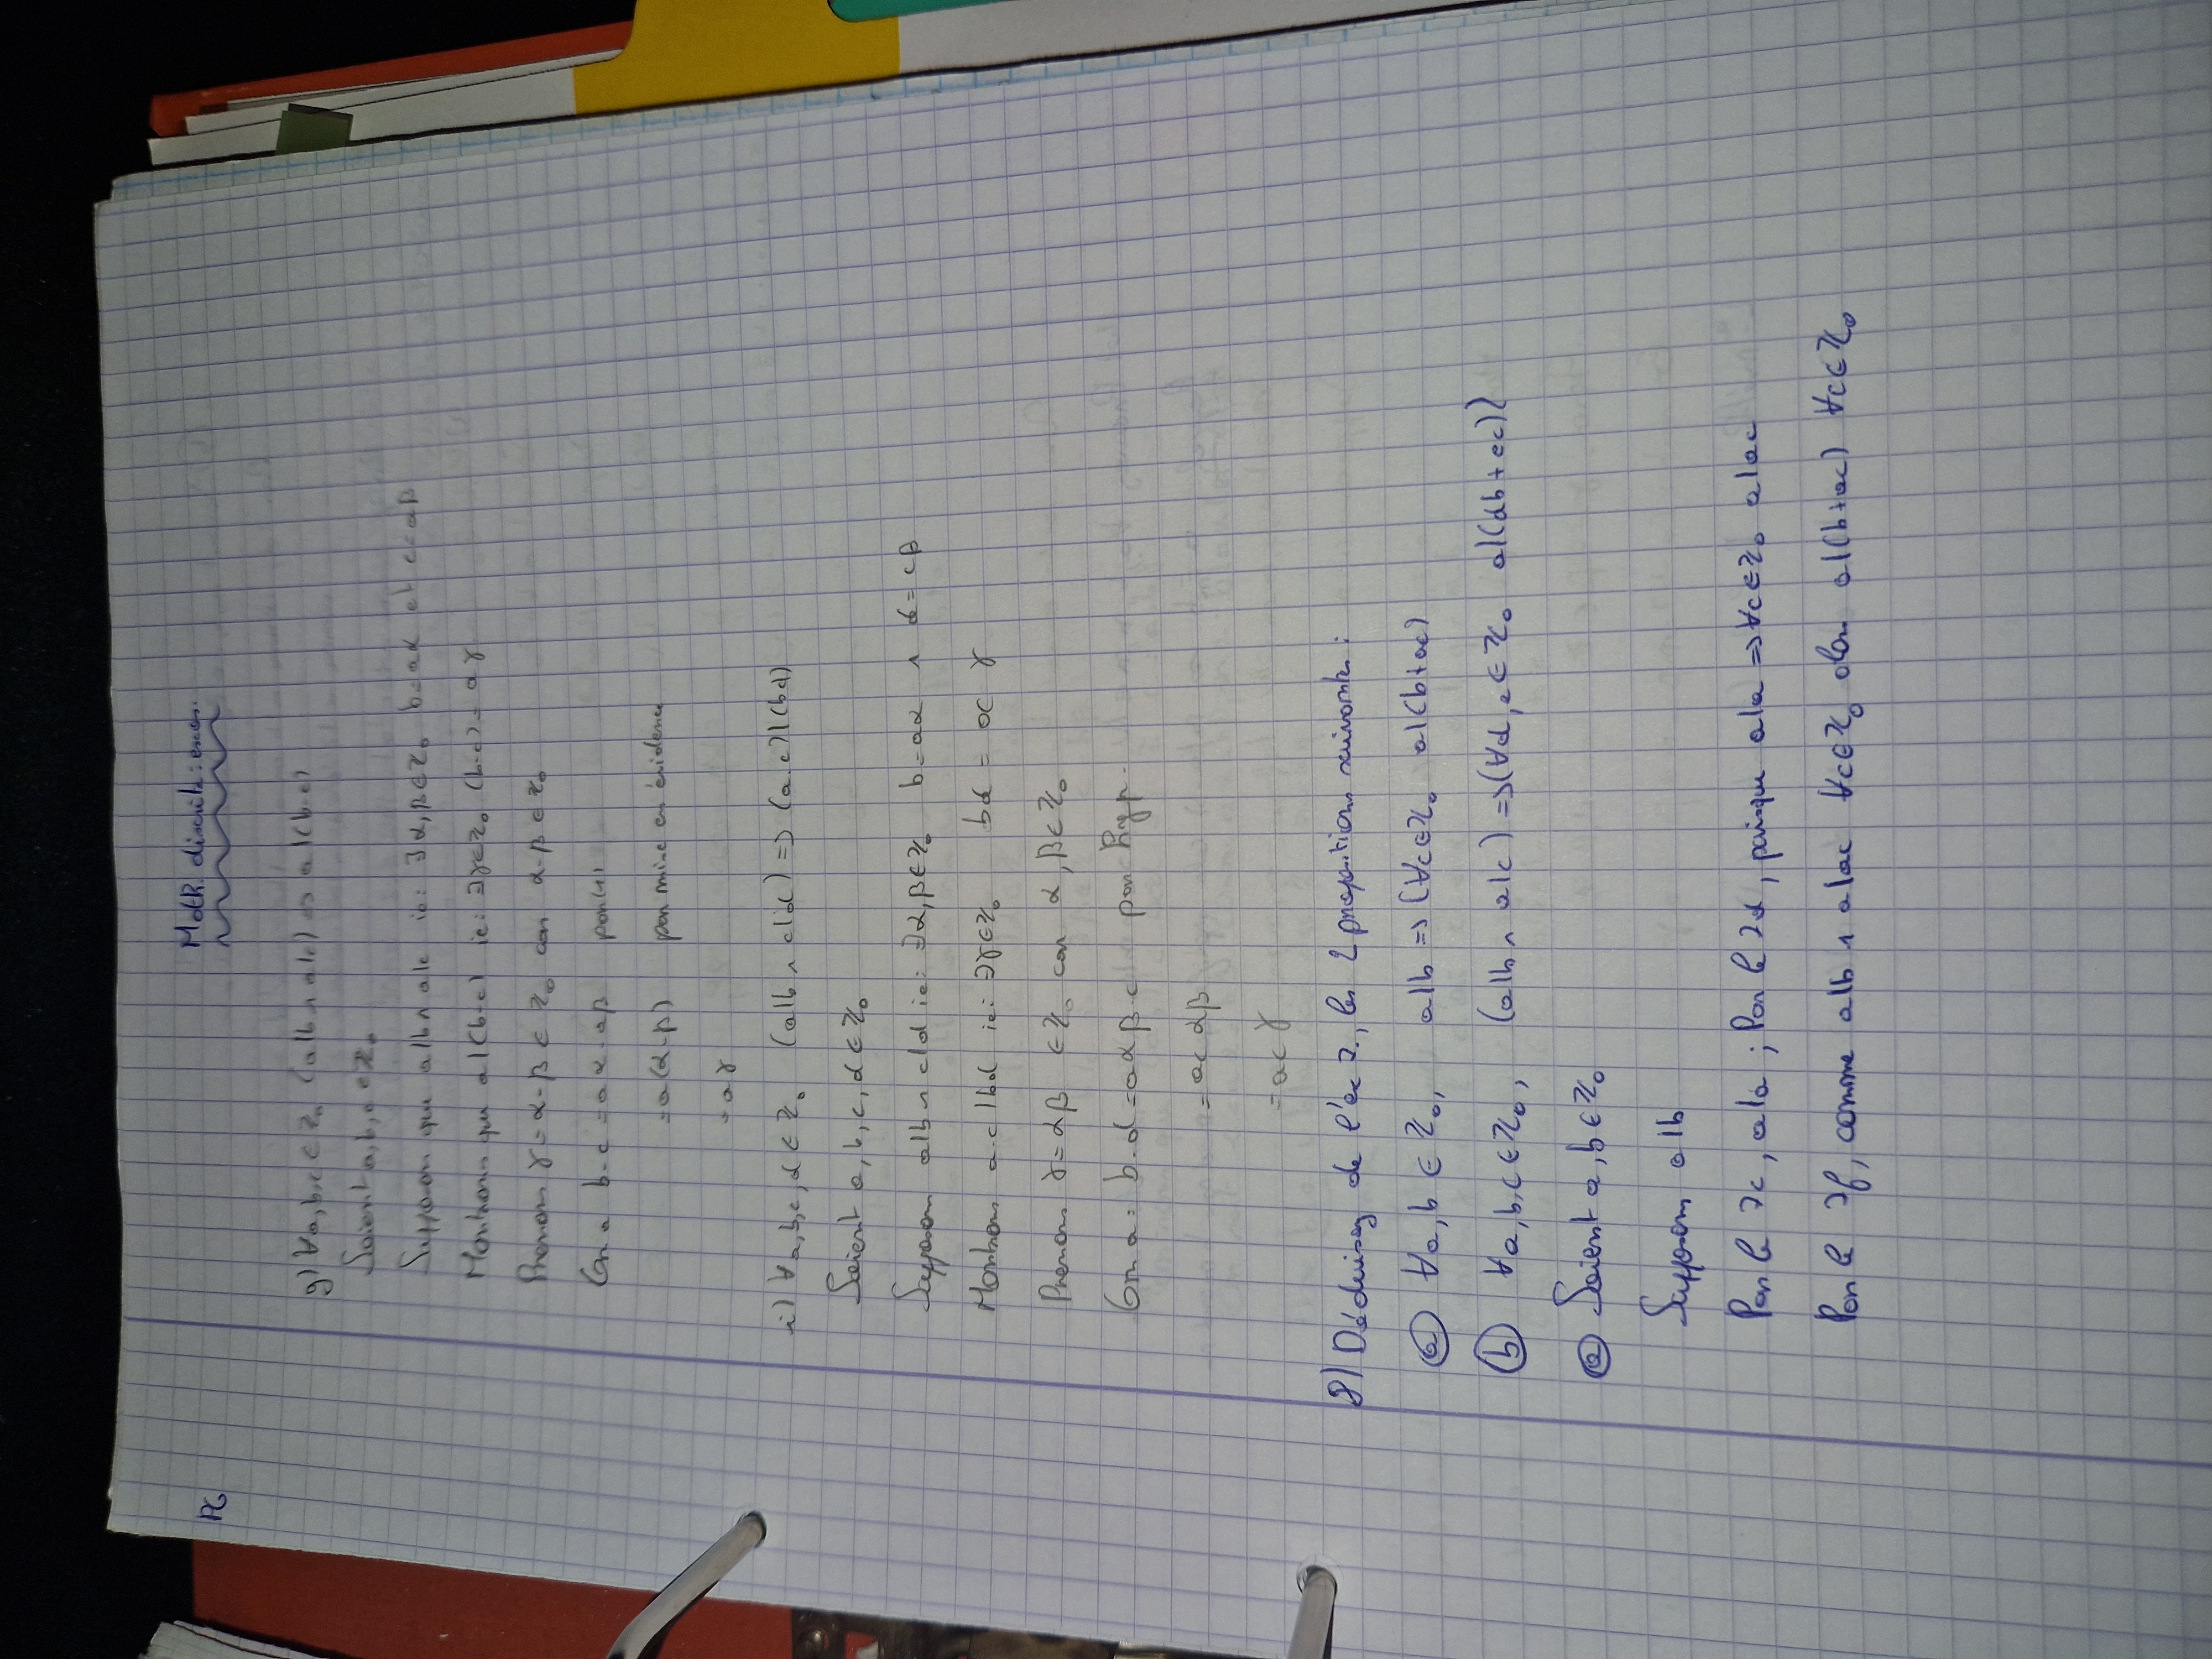 Math. discrète : exos.
P6
g) ∀a,b,c ∈ ℤ₀ (a|b ∧ a|c) => a|(b-c)
Soient a,b,c ∈ ℤ₀
Supposon que a|b ∧ a|c ie: ∃α,β∈ℤ₀ b=aα et c=aβ
Montrons que a|(b-c) ie: ∃γ∈ℤ₀ (b-c) = aγ
Prenons γ=α-β ∈ ℤ₀ car α-β ∈ ℤ₀
On a b-c = aα-aβ par(1)
=a(α-β) par mise en évidence
=aγ
i) ∀a,b,c,d ∈ ℤ₀ (a|b ∧ c|d) => (a.c)|(bd)
Soient a,b,c,d ∈ ℤ₀
Supposons a|b ∧ c|d ie: ∃α,β∈ℤ₀ b=aα ∧ d=cβ
Montrons a.c|bd ie: ∃γ∈ℤ₀ bd = ac γ
Prenons γ=αβ ∈ℤ₀ car α,β∈ℤ₀
On a: b.d=aαβ.c par hyp.
=ac αβ
=ac γ
8) Déduisez de l'ex 7., les 2 propositions suivantes :
ⓐ ∀a,b ∈ ℤ₀, a|b => (∀c∈ℤ₀ a|(b+ac)
ⓑ ∀a,b,c∈ℤ₀, (a|b ∧ a|c) =>(∀d,e∈ℤ₀ a|(db+ec))
ⓐ Soient a,b ∈ℤ₀
Supposons a|b
Par le 7c, a|a ; Par le 7d, puisque a|a => ∀c∈ℤ₀ a|ac
Par le 7f, comme a|b ∧ a|ac ∀c∈ℤ₀ alors a|(b+ac) ∀c∈ℤ₀